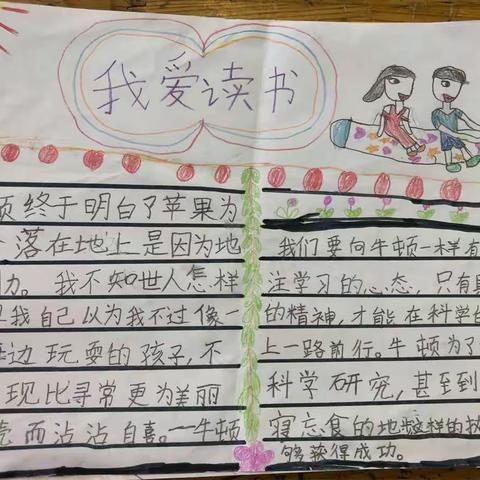 我爱读书
顿终于明白了苹果为
落在地上是因为地
力。我不知世人怎样
我自己以为我不过像一
边玩耍的孩子,不
现比寻常更为美丽
壳而沾沾自喜。一牛顿
我们要向牛顿一样有
注学习的心态,只有
的精神,才能在科学的
上一路前行。牛顿为了
科学研究,甚至到
寝忘食的地这样的
够获得成功。